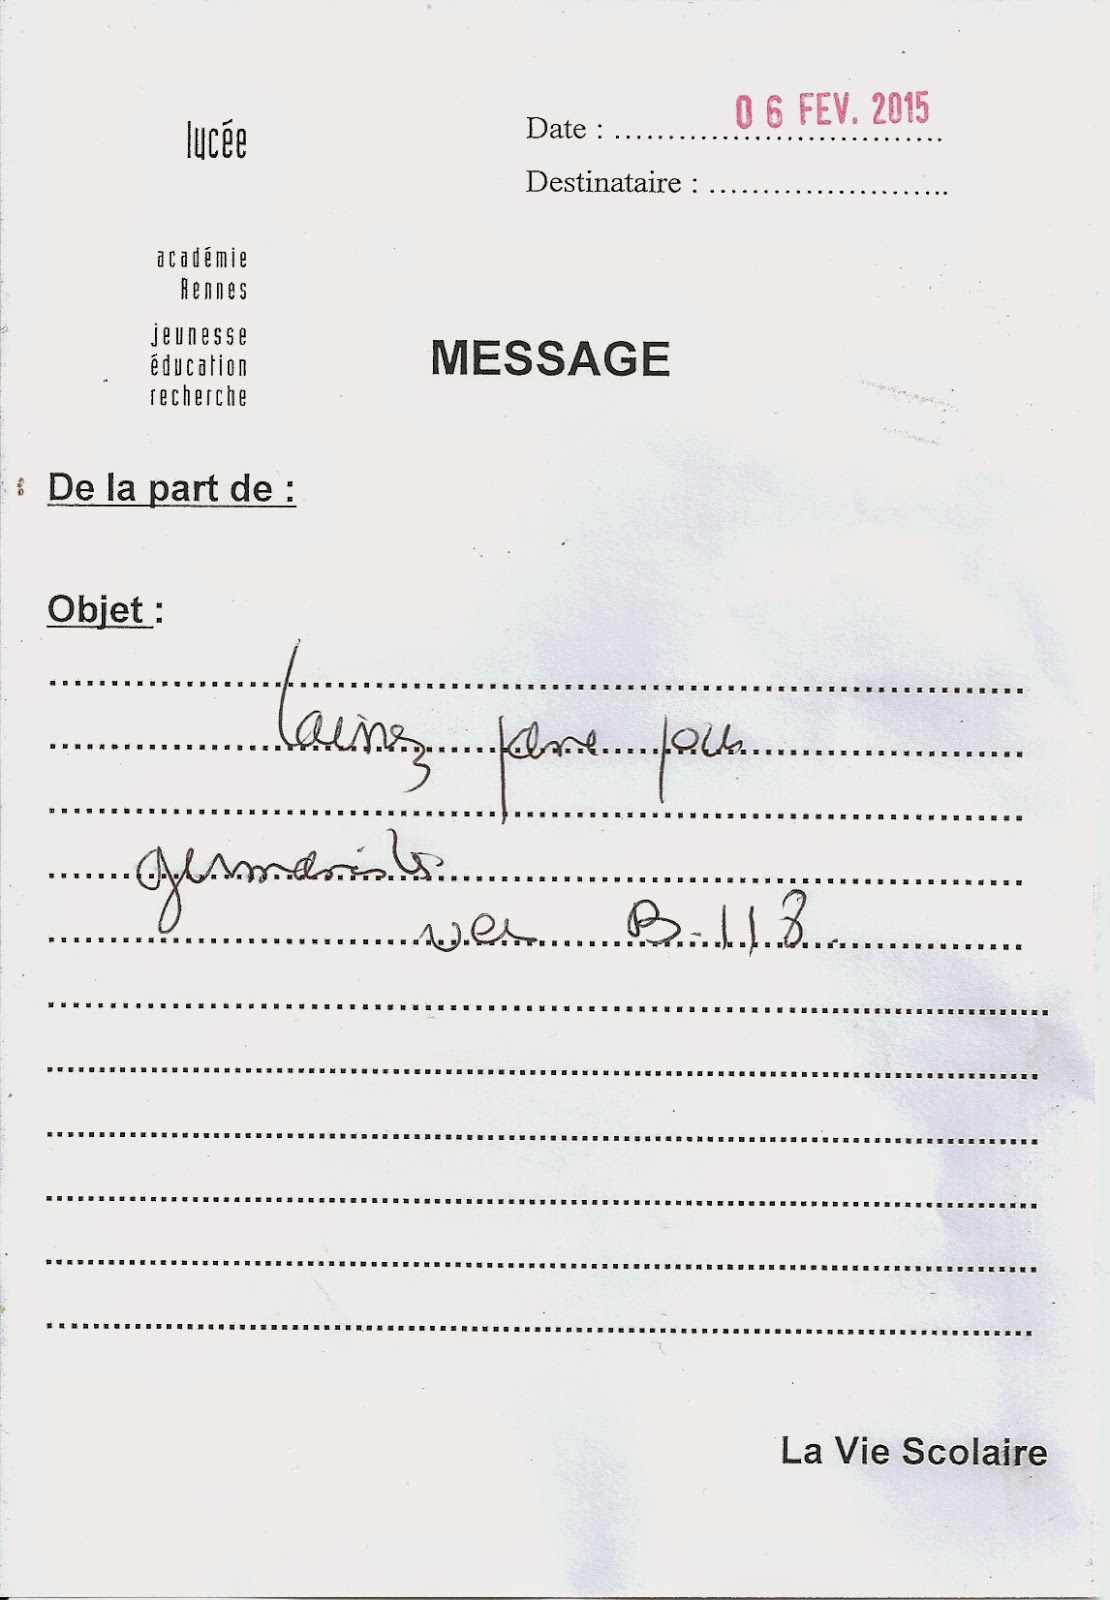 lycée
académie
Rennes
jeunesse
éducation
recherche
Date : ................................ 06 FEV. 2015
Destinataire : ........................
MESSAGE
De la part de :
Objet :
laissez passer pour
germanistes
vers B.118.
La Vie Scolaire